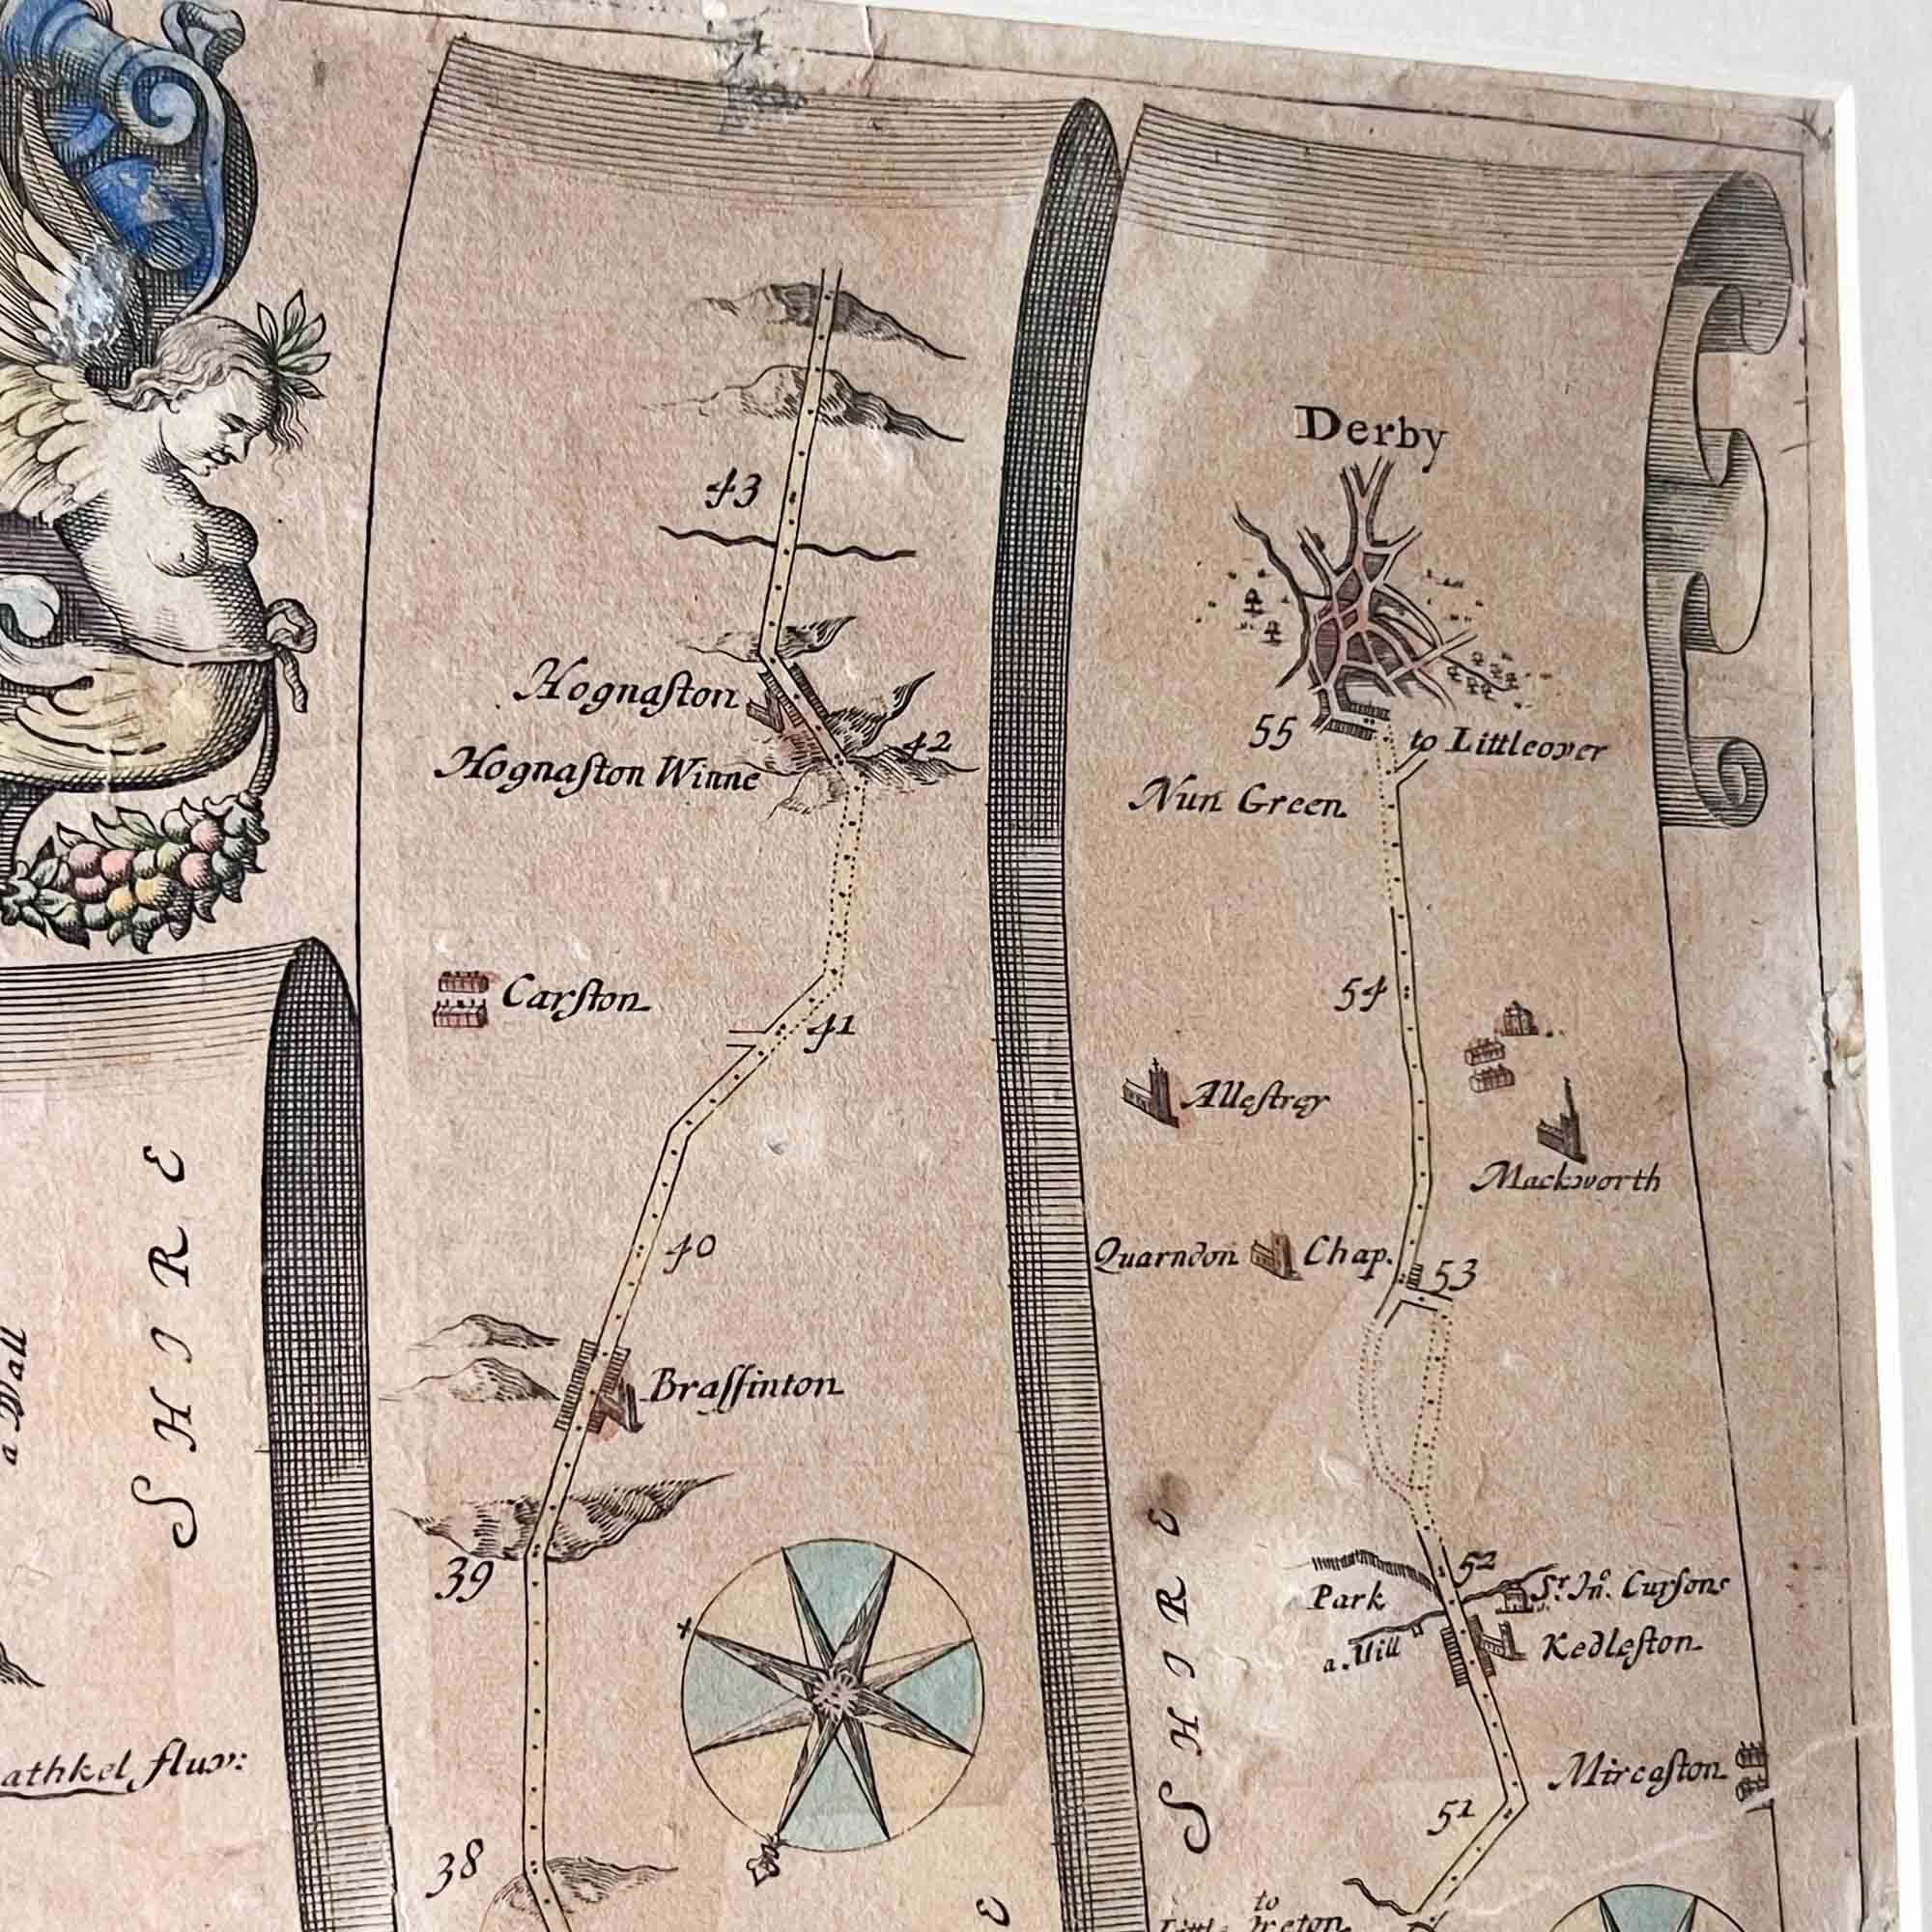 a Wall
SHIRE
athkel fluv:
43
Hognaſton
42
Hognaſton Winne
Carſton
41
40
Braſſinton
39
38
E
Derby
55
to Littleover
Nun Green
54
Alleſtrey
Mackworth
Quarndon
Chap.
53
SHIRE
52
Park
Sr. Jno. Curſons
a Mill
Kedleſton
Mircaſton
51
to
Little Ireton